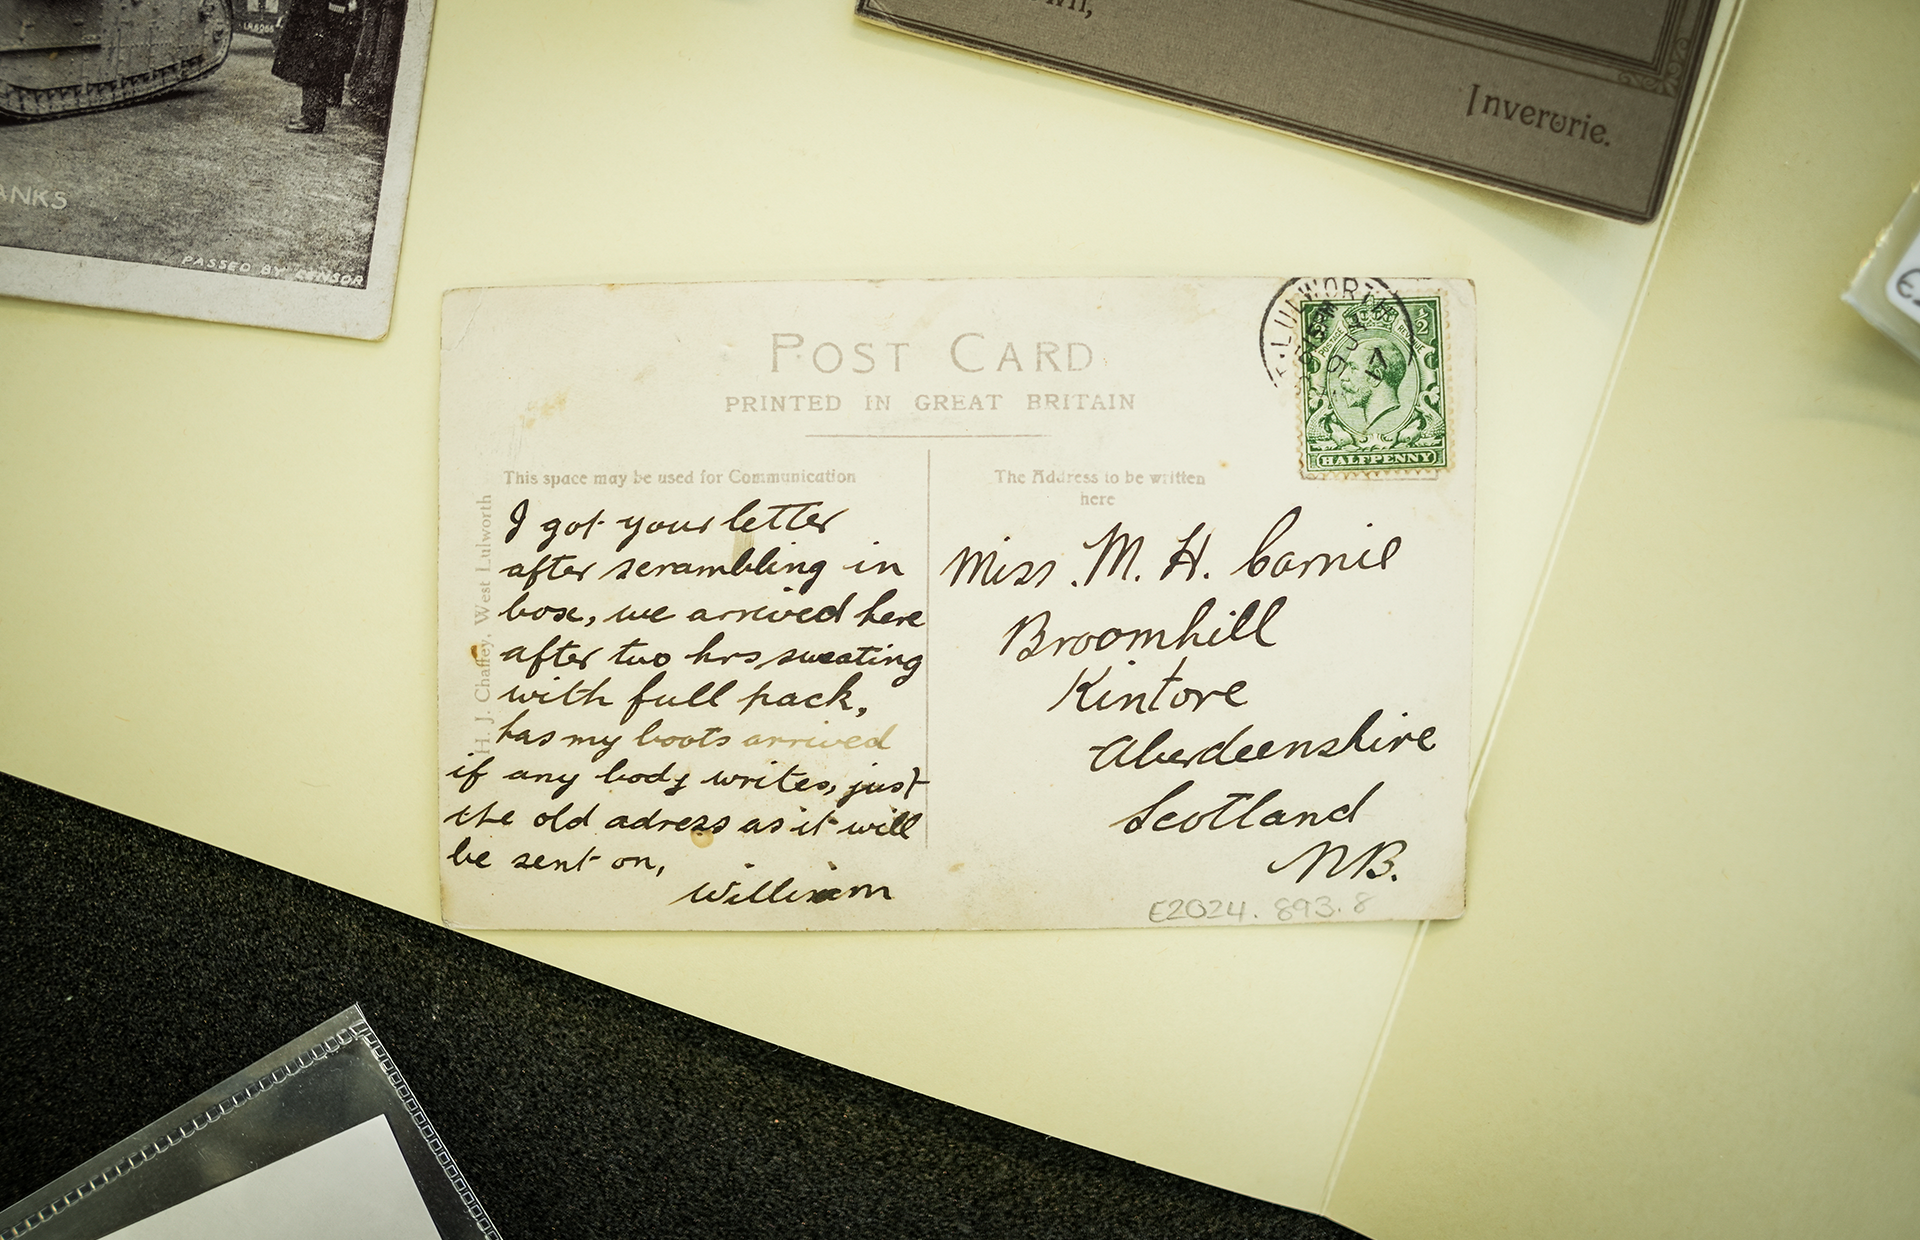 LR6065
ANKS
PASSED BY CENSOR
Inverurie.
POST CARD
PRINTED IN GREAT BRITAIN
LULWORTH
1/2
POSTAGE
REVENUE
HALFPENNY
This space may be used for Communication
H. J. Chaffey, West Lulworth
I got your letter
after scrambling in
box, we arrived here
after two hrs sweating
with full pack,
has my boots arrived
if any body writes, just
the old adress as it will
be sent on,
William
The Address to be written
here
Miss. M. H. Carnie
Broomhill
Kintore
Aberdeenshire
Scotland
NB.
E2024.893.8